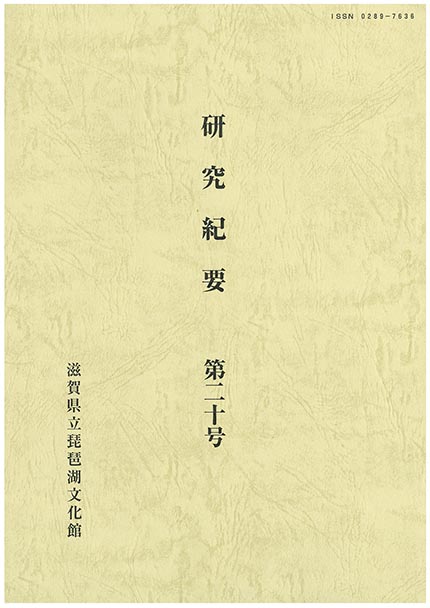 ISSN 0289-7636
研究紀要 第二十号
滋賀県立琵琶湖文化館